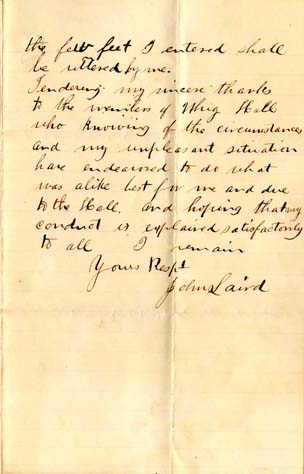 the felt feet I entered shall
be uttered by me.
Tendering my sincere thanks
to the members of Whig Hall
who knowing of the circumstances
and my unpleasant situation
have endeavored to do what
was alike best for me and due
to the Hall, and hoping that my
conduct is explained satisfactorily
to all I remain
Yours Respt
John Laird